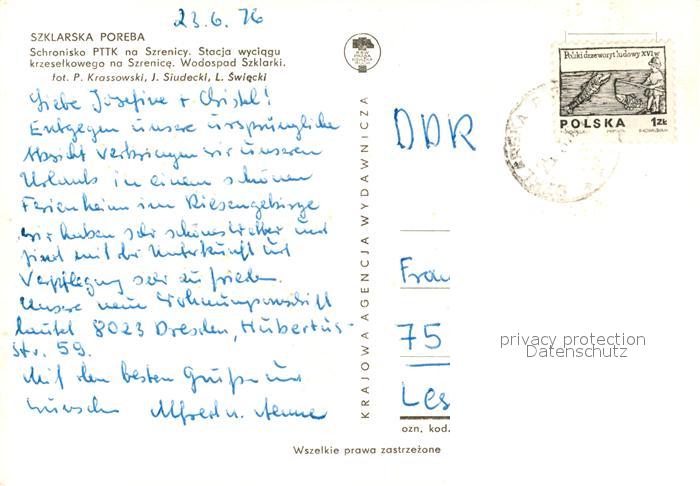 23.6.76
SZKLARSKA PORĘBA
Schronisko PTTK na Szrenicy. Stacja wyciągu
krzesełkowego na Szrenicę. Wodospad Szklarki.
fot. P. Krassowski, J. Siudecki, L. Święcki
Liebe Josefine + Christel!
Entgegen unsere ursprüngliche
Absicht verbringen wir unseren
Urlaub in einem schönen
Ferienheim im Riesengebirge
wir haben sehr schönes Wetter und
sind mit der Unterkunft und
Verpflegung sehr zufrieden.
Unsere neue Wohnungsanschrift
lautet 8023 Dresden, Hubertus-
str. 59.
Mit den besten Grüßen und
Alfred u.
KRAJOWA AGENCJA WYDAWNICZA
Polski drzeworyt ludowy XVI w
POLSKA 1ZŁ
DDR
Frau
75
Les
ozn. kod.
privacy protection
Datenschutz
Wszelkie prawa zastrzeżone